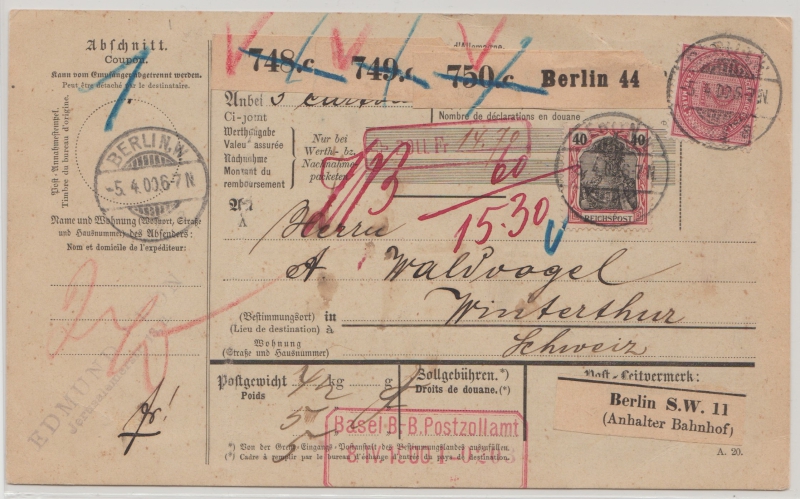 Abschnitt.
Coupon.
Kann vom Empfänger abgetrennt werden.
Peut être détaché par le destinataire.
Post-Annahmestempel.
Timbre du bureau d'origine.
BERLIN.N.W.
-5.4.00.6-7N
Name und Wohnung (Wohnort, Straße
und Hausnummer) des Absenders:
Nom et domicile de l'expéditeur:
EDMUND
fr!
748.c
749.c
750.c Berlin 44
d'Allemagne.
Anbei 3
Ci-joint
Nombre de déclarations en douane
Werthangabe
Valeur assurée
Nachnahme
Montant du
remboursement
Nur bei
Werth- bz.
Nachnahme-
paketen
Fr 14.70
60
15.30
40 40
REICHSPOST
An
A
Herrn
A Waldvogel
(Bestimmungsort) in
(Lieu de destination) à
Winterthur
Wohnung
(Straße und Hausnummer)
Schweiz
Postgewicht kg g
Poids
5
5
Zollgebühren.*)
Droits de douane.(*)
Post-Leitvermerk:
Berlin S.W. 11
(Anhalter Bahnhof)
Basel B.B. Postzollamt
*) Von der Grenz-Eingangs-Postanstalt des Bestimmungslandes auszufüllen.
(*) Cadre à remplir par le bureau d'échange d'entrée du pays de destination.
A. 20.